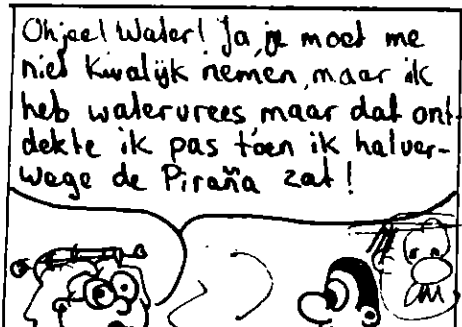 Oh jee! Water! Ja, je moet me
niet kwalijk nemen, maar ik
heb watervrees maar dat ont-
dekte ik pas toen ik halver-
wege de Piraña zat!